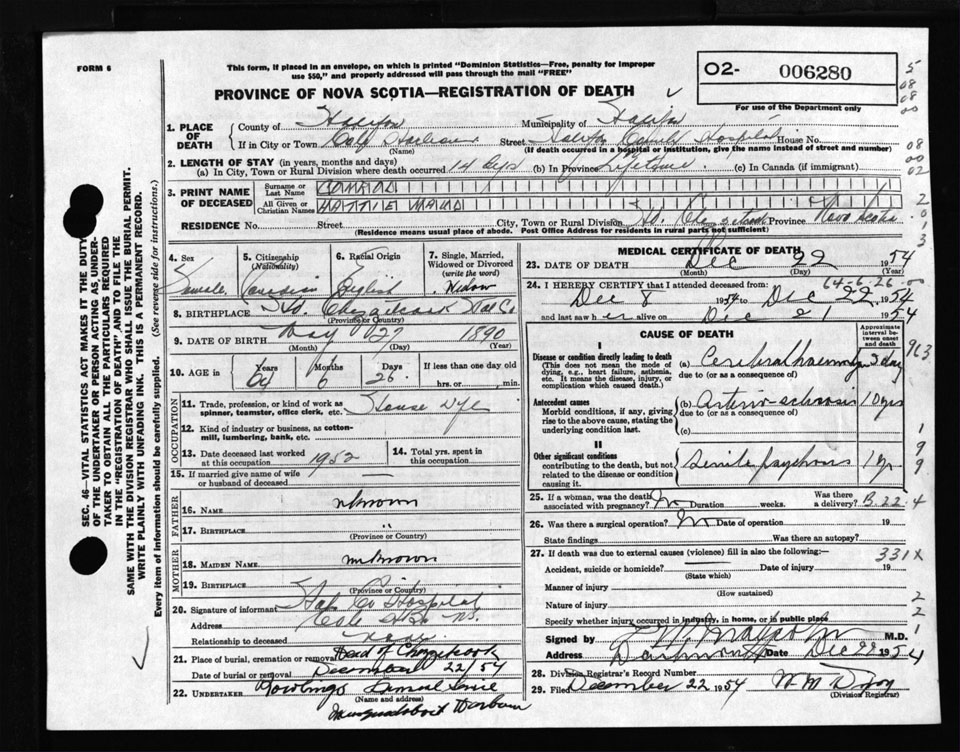 FORM 6
This form, if placed in an envelope, on which is printed "Dominion Statistics—Free, penalty for improper
use $50," and properly addressed will pass through the mail "FREE"
O2- 006280
For use of the Department only
PROVINCE OF NOVA SCOTIA—REGISTRATION OF DEATH
1. PLACE OF DEATH
County of Halifax Municipality of Halifax
If in City or Town Cole Harbour Street Halifax County Hospital House No.
(Name) (If death occurred in a hospital or institution, give the name instead of street and number)
2. LENGTH OF STAY (in years, months and days)
(a) In City, Town or Rural Division where death occurred 14 days (b) In Province Lifetime (c) In Canada (if immigrant)
3. PRINT NAME OF DECEASED
Surname or Last Name CONROD
All Given or Christian Names HATTIE MAUD
RESIDENCE No. Street City, Town or Rural Division Hd. Chezzetcook Province Nova Scotia
(Residence means usual place of abode. Post Office Address for residents in rural parts not sufficient)
4. Sex 5. Citizenship (Nationality) 6. Racial Origin 7. Single, Married, Widowed or Divorced (write the word)
Female Canadian English Widow
8. BIRTHPLACE Hd. Chezzetcook Hal Co
(Province or Country)
9. DATE OF BIRTH May 27 1890
(Month) (Day) (Year)
10. AGE in Years 64 Months 6 Days 26 If less than one day old
hrs. or min.
OCCUPATION
11. Trade, profession, or kind of work as spinner, teamster, office clerk, etc. House Wife
12. Kind of industry or business, as cotton-mill, lumbering, bank, etc.
13. Date deceased last worked at this occupation 1952 14. Total yrs. spent in this occupation
15. If married give name of wife or husband of deceased
FATHER
16. NAME unknown
17. BIRTHPLACE "
(Province or Country)
MOTHER
18. MAIDEN NAME unknown
19. BIRTHPLACE
(Province or Country)
20. Signature of informant Hal. Co Hospital
Address Cole Hbr. N.S.
Relationship to deceased
21. Place of burial, cremation or removal Head of Chezzetcook
Date of burial or removal December 22/54
22. UNDERTAKER
(Name and address)
Musquodoboit Harbour
MEDICAL CERTIFICATE OF DEATH
23. DATE OF DEATH Dec 22 1954
(Month) (Day) (Year)
64-6-26-00
24. I HEREBY CERTIFY that I attended deceased from:
Dec 8 1954 to Dec 22 1954
and last saw her alive on Dec 21 1954
CAUSE OF DEATH
Approximate interval between onset and death
I
Disease or condition directly leading to death
(This does not mean the mode of dying, e.g., heart failure, asthenia, etc. It means the disease, injury, or complication which caused death.)
(a) Cerebral haemorrhage 3 days
due to (or as a consequence of)
Antecedent causes
Morbid conditions, if any, giving rise to the above cause, stating the underlying condition last.
(b) Arterio-sclerosis 10 yrs
due to (or as a consequence of)
(c)
II
Other significant conditions
contributing to the death, but not related to the disease or condition causing it.
Senile psychosis 1 yr
25. If a woman, was the death associated with pregnancy? No Duration weeks. Was there a delivery? B.22.4
26. Was there a surgical operation? No Date of operation 19
State findings Was there an autopsy?
27. If death was due to external causes (violence) fill in also the following:— 331X
Accident, suicide or homicide? Date of injury 19
(State which)
Manner of injury
(How sustained)
Nature of injury
Specify whether injury occurred in industry, in home, or in public place
Signed by M.D.
Address Dartmouth Date Dec 22 1954
28. Division Registrar's Record Number
29. Filed December 22 1954
(Division Registrar)
SEC. 46—VITAL STATISTICS ACT MAKES IT THE DUTY
OF THE UNDERTAKER OR PERSON ACTING AS UNDER-
TAKER TO OBTAIN ALL THE PARTICULARS REQUIRED
IN THE "REGISTRATION OF DEATH" AND TO FILE THE
SAME WITH THE DIVISION REGISTRAR WHO SHALL ISSUE THE BURIAL PERMIT.
WRITE PLAINLY WITH UNFADING INK. THIS IS A PERMANENT RECORD.
Every item of information should be carefully supplied. (See reverse side for instructions.)